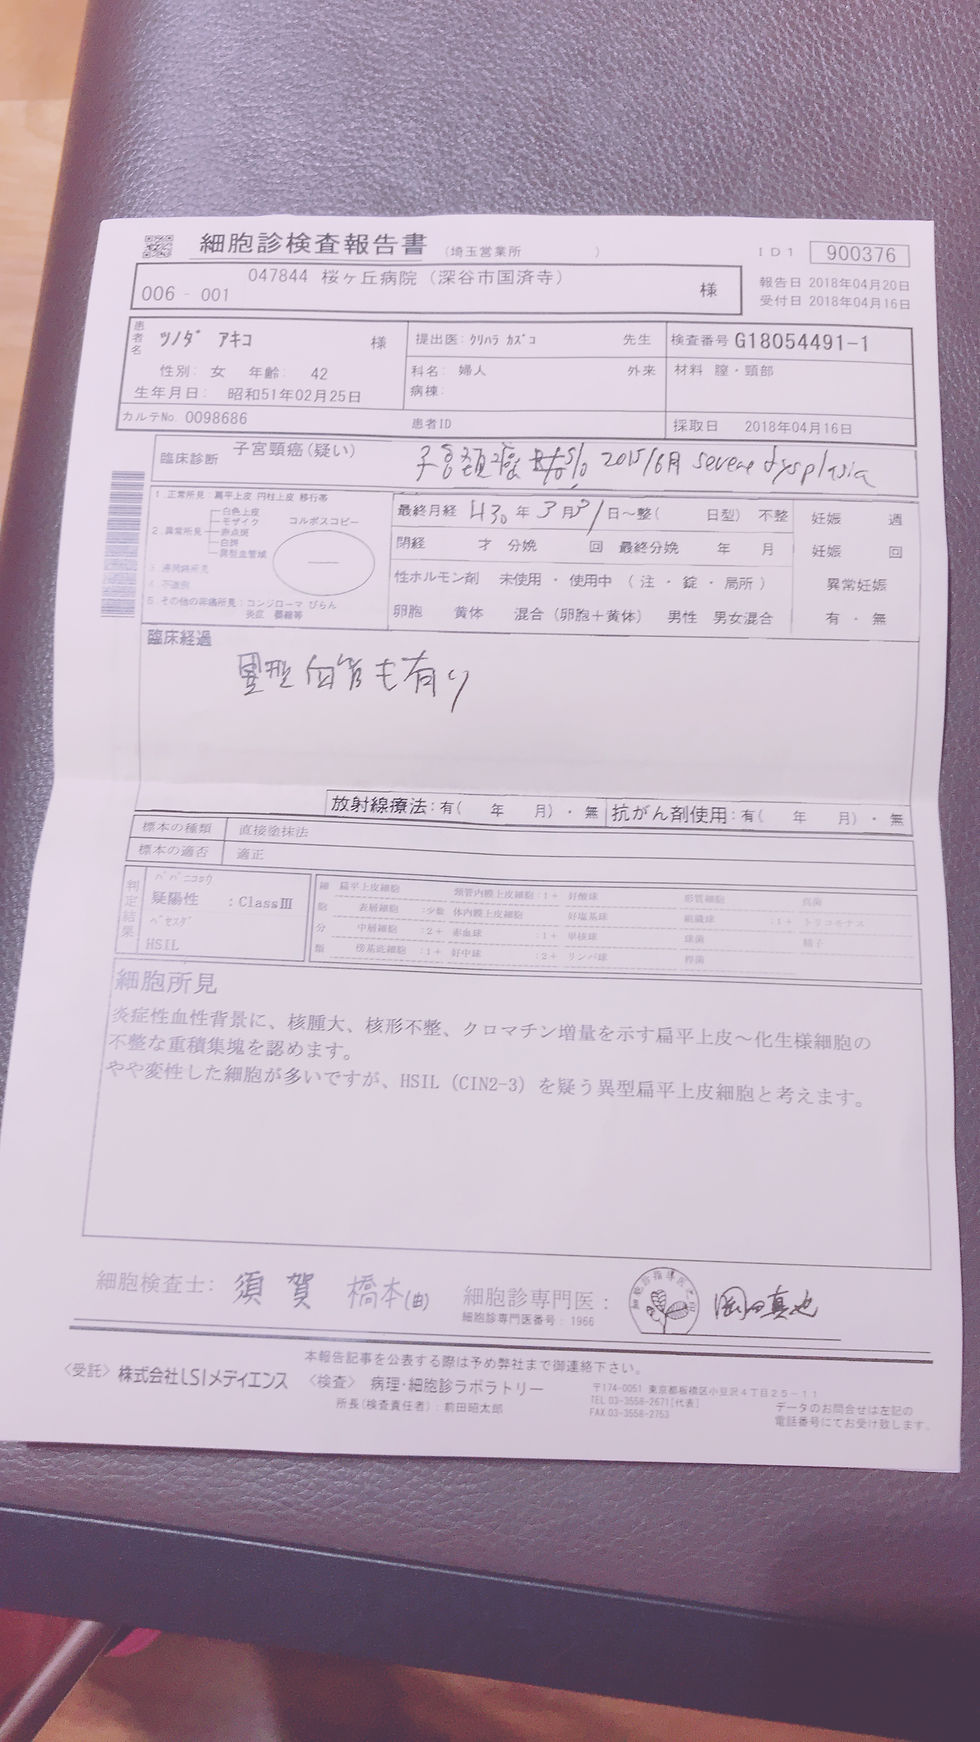 細胞診検査報告書 (埼玉営業所 )
ID1 900376
報告日 2018年04月20日
受付日 2018年04月16日
047844 桜ヶ丘病院 (深谷市国済寺)
006 - 001 様
患者名 ツノダ アキコ 様
提出医: クリハラ カズコ 先生
検査番号 G18054491-1
性別: 女 年齢: 42
科名: 婦人 外来
材料 膣・頸部
生年月日: 昭和51年02月25日
病棟:
カルテNo. 0098686
患者ID
採取日 2018年04月16日
臨床診断 子宮頸癌(疑い)
2015/6月 severe dysplasia
1.正常所見: 扁平上皮 円柱上皮 移行帯
2.異常所見
白色上皮
モザイク
赤点斑
白斑
異型血管域
コルポスコピー
4.不適例
5.その他の非癌所見: コンジローマ びらん
炎症 萎縮等
最終月経 H30年 3月 日〜整( 日型) 不整
妊娠 週
閉経 才 分娩 回 最終分娩 年 月
妊娠 回
性ホルモン剤 未使用・使用中 (注・錠・局所)
異常妊娠
卵胞 黄体 混合 (卵胞+黄体) 男性 男女混合
有・無
臨床経過
異型血管も有り
放射線療法: 有( 年 月)・無
抗がん剤使用: 有( 年 月)・無
標本の種類 直接塗抹法
標本の適否 適正
判定結果
パパニコロウ
疑陽性 : ClassⅢ
ベセスダ
HSIL
細胞分類
扁平上皮細胞
表層細胞 :少数
中層細胞 :2+
傍基底細胞 :1+
頸管内膜上皮細胞 :1+
体内膜上皮細胞
赤血球 :1+
好中球 :2+
好酸球
好塩基球
単核球
リンパ球
形質細胞
組織球 :1+
球菌
桿菌
真菌
トリコモナス
精子
細胞所見
炎症性血性背景に、核腫大、核形不整、クロマチン増量を示す扁平上皮〜化生様細胞の
不整な重積集塊を認めます。
やや変性した細胞が多いですが、HSIL (CIN2-3) を疑う異型扁平上皮細胞と考えます。
細胞検査士: 須賀 橋本(由)
細胞診専門医:
岡田真也
細胞診専門医番号: 1966
本報告記事を公表する際は予め弊社まで御連絡下さい。
〈受託〉 株式会社LSIメディエンス 〈検査〉 病理・細胞診ラボラトリー
所長(検査責任者): 前田昭太郎
〒174-0051 東京都板橋区小豆沢4丁目25-11
TEL 03-3558-2671[代表]
FAX 03-3558-2753
データのお問合せは左記の
電話番号にてお受け致します。